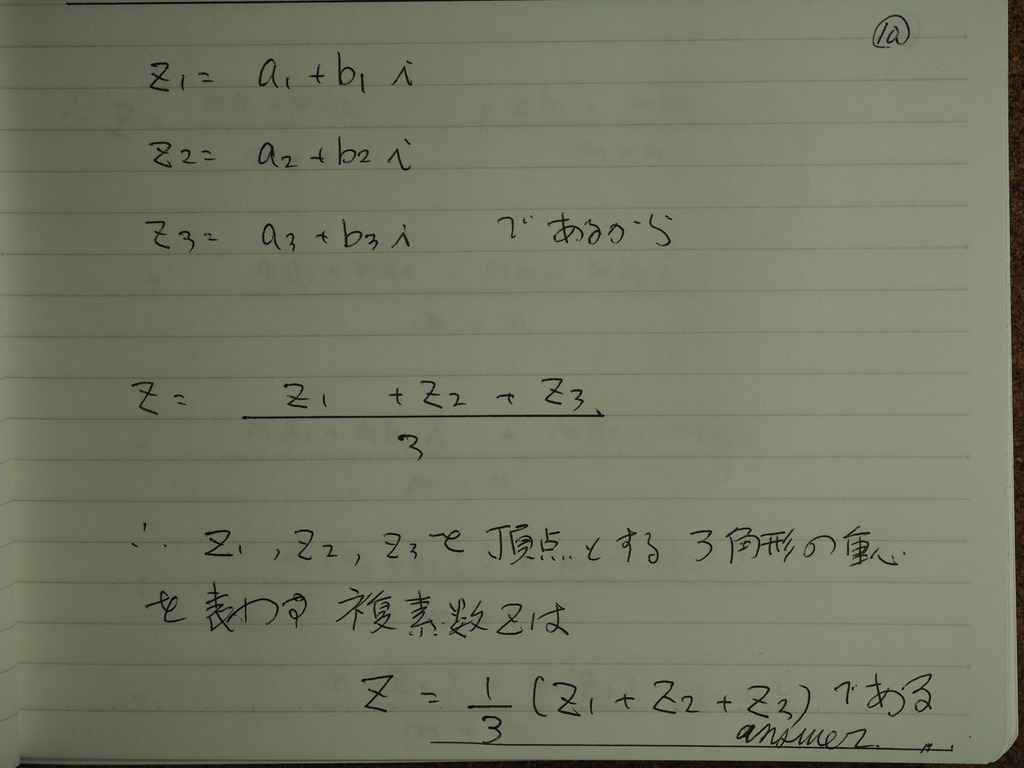 ⑩
z₁ = a₁ + b₁ i
z₂ = a₂ + b₂ i
z₃ = a₃ + b₃ i であるから
z = (z₁ + z₂ + z₃) / 3
∴ z₁, z₂, z₃を頂点とする3角形の重心
を表わす複素数zは
z = 1/3 (z₁ + z₂ + z₃) である
answer